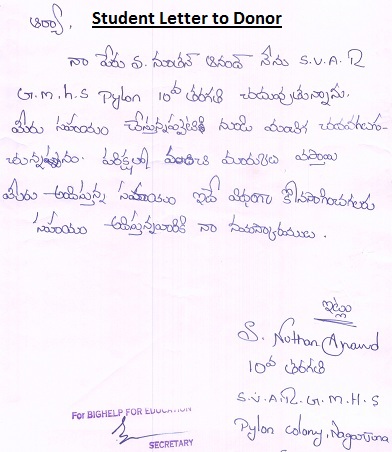 Student Letter to Donor
ఆర్యా,
నా పేరు వ. నూతన్ ఆనంద్ నేను S.V.A.R
G.M.H.S Pylon 10వ తరగతి చదువుతున్నాను.
మీరు సహాయం నుండి మంచిగా
పరిక్షలలో మంచి మార్కులు వస్తాయి
మీరు అందిస్తున్న సహాయం ఇదే విధంగా కొనసాగించగలరు
సహాయం అందిస్తున్నవారికి నా నమస్కారములు.
ఇట్లు
S. Nuthan Anand
10వ తరగతి
S.V.A.R.G.M.H.S
Pylon colony, Nagarjuna
For BIGHELP FOR EDUCATION
SECRETARY